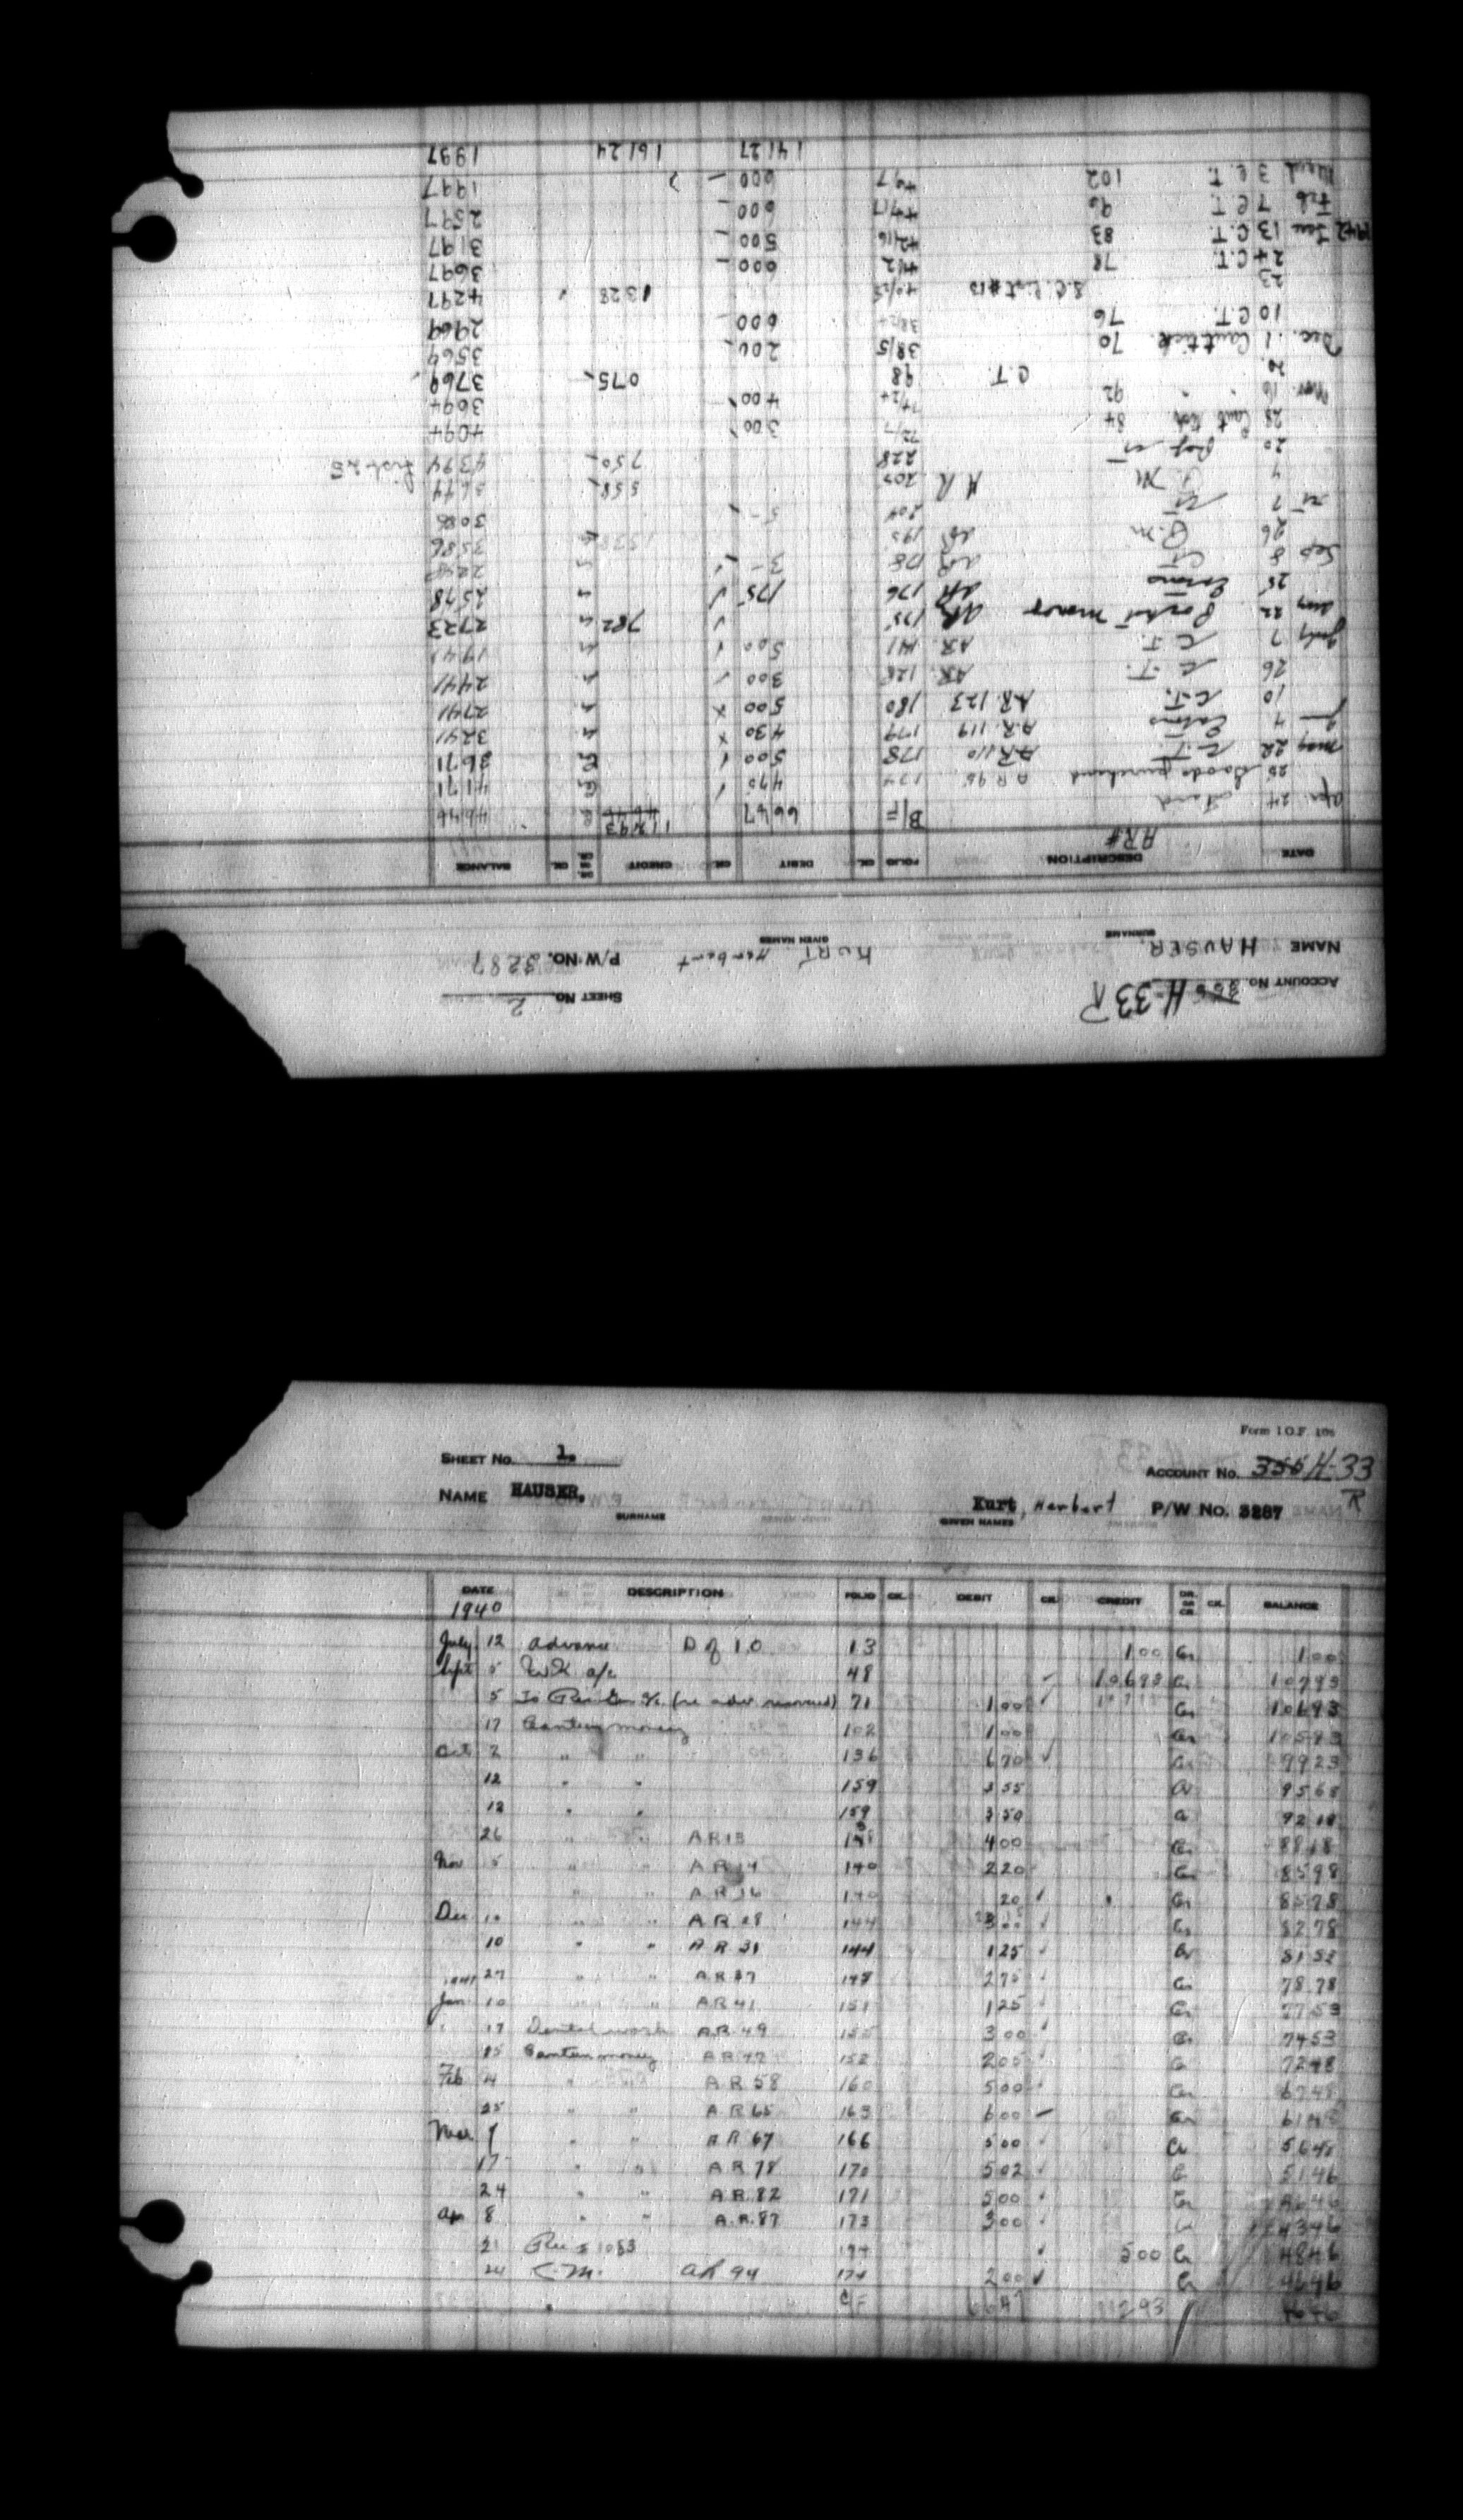 Form I.O.F. 106
SHEET No. 1.
ACCOUNT No. 355 H-33
R
NAME HAUSER, Kurt, Herbert P/W No. 3287
SURNAME GIVEN NAMES
DATE DESCRIPTION FOLIO CK. DEBIT CK. CREDIT DR. OR CR. CK. BALANCE
1940
July 12 Advance D of 10 13 1 00 Cr 1 00
Sept 5 a/c 48 106 93 Cr 107 93
5 71 1 00 Cr 106 93
17 Canteen money 102 1 00 Cr 105 93
Oct 2 " " 136 6 70 Cr 99 23
12 " " 159 3 55 Cr 95 68
12 " " 159 3 50 Cr 92 18
26 " " AR 13 4 00 Cr 88 18
Nov 5 " " AR 14 140 2 20 Cr 85 98
" " AR 16 140 20 Cr 85 78
Dec 10 " " AR 28 144 3 00 Cr 82 78
10 " " AR 31 144 1 25 Cr 81 53
27 " " AR 37 148 2 75 Cr 78 78
1941
Jan 10 " " AR 41 151 1 25 Cr 77 53
17 Dental work AR 49 155 3 00 Cr 74 53
25 Canteen money 158 2 05 Cr 72 48
Feb 4 " " AR 58 160 5 00 Cr 67 48
25 " " AR 65 163 6 00 Cr 61 48
Mar 7 " " AR 67 166 5 00 Cr 56 48
17 " " AR 78 170 5 02 Cr 51 46
24 " " AR 82 171 5 00 Cr 46 46
Ap 8 " " AR 87 173 3 00 Cr 43 46
21 174 5 00 Cr 48 46
24 C.M. AR 94 174 2 00 Cr 46 46
C/F 66 47 112 93 46 46
ACCOUNT No. 355 H-33 R
SHEET No. 2
NAME HAUSER, KURT, Herbert P/W No. 3287
SURNAME GIVEN NAMES
DATE DESCRIPTION FOLIO CK. DEBIT CK. CREDIT DR. OR CR. CK. BALANCE
AR#
Apr 24 B/F 66 47 112 93 46 46
25 Goods purchased AR 95 174 4 75 Cr 41 71
May 22 C.T. AR 110 178 5 00 Cr 36 71
June 4 AR 119 179 4 30 32 41
10 C.T. AR 123 180 5 00 27 41
26 C.T. AR 128 3 00 24 41
July 7 C.T. AR 141 5 00 19 41
Aug 22 AR 175 7 82 27 23
25 AR 176 1 75 25 48
Sep 8 C.T. AR 178 3 - 22 48
26 P.M. AR 195 13 38 35 86
7 C.T. 204 5 - 30 86
4 P.M. AR 205 5 58 36 44
20 228 7 50 43 94
28 Cant tick 84 72/7 3 00 40 94
Nov 16 " " 92 74/24 4 00 36 94
20 C.T. 98 0 75 37 69
Dec. 1 Cant tick 70 38/5 2 00 35 69
10 C.T. 76 38/24 6 00 29 69
23 S.C. List #13 40/25 13 28 42 97
24 C.T. 78 41/2 6 00 36 97
1942 Jan 13 C.T. 83 42/16 5 00 31 97
Feb 7 C.T. 90 44/17 6 00 25 97
March 3 C.T. 102 6 00 19 97
141 27 161 24 19 97